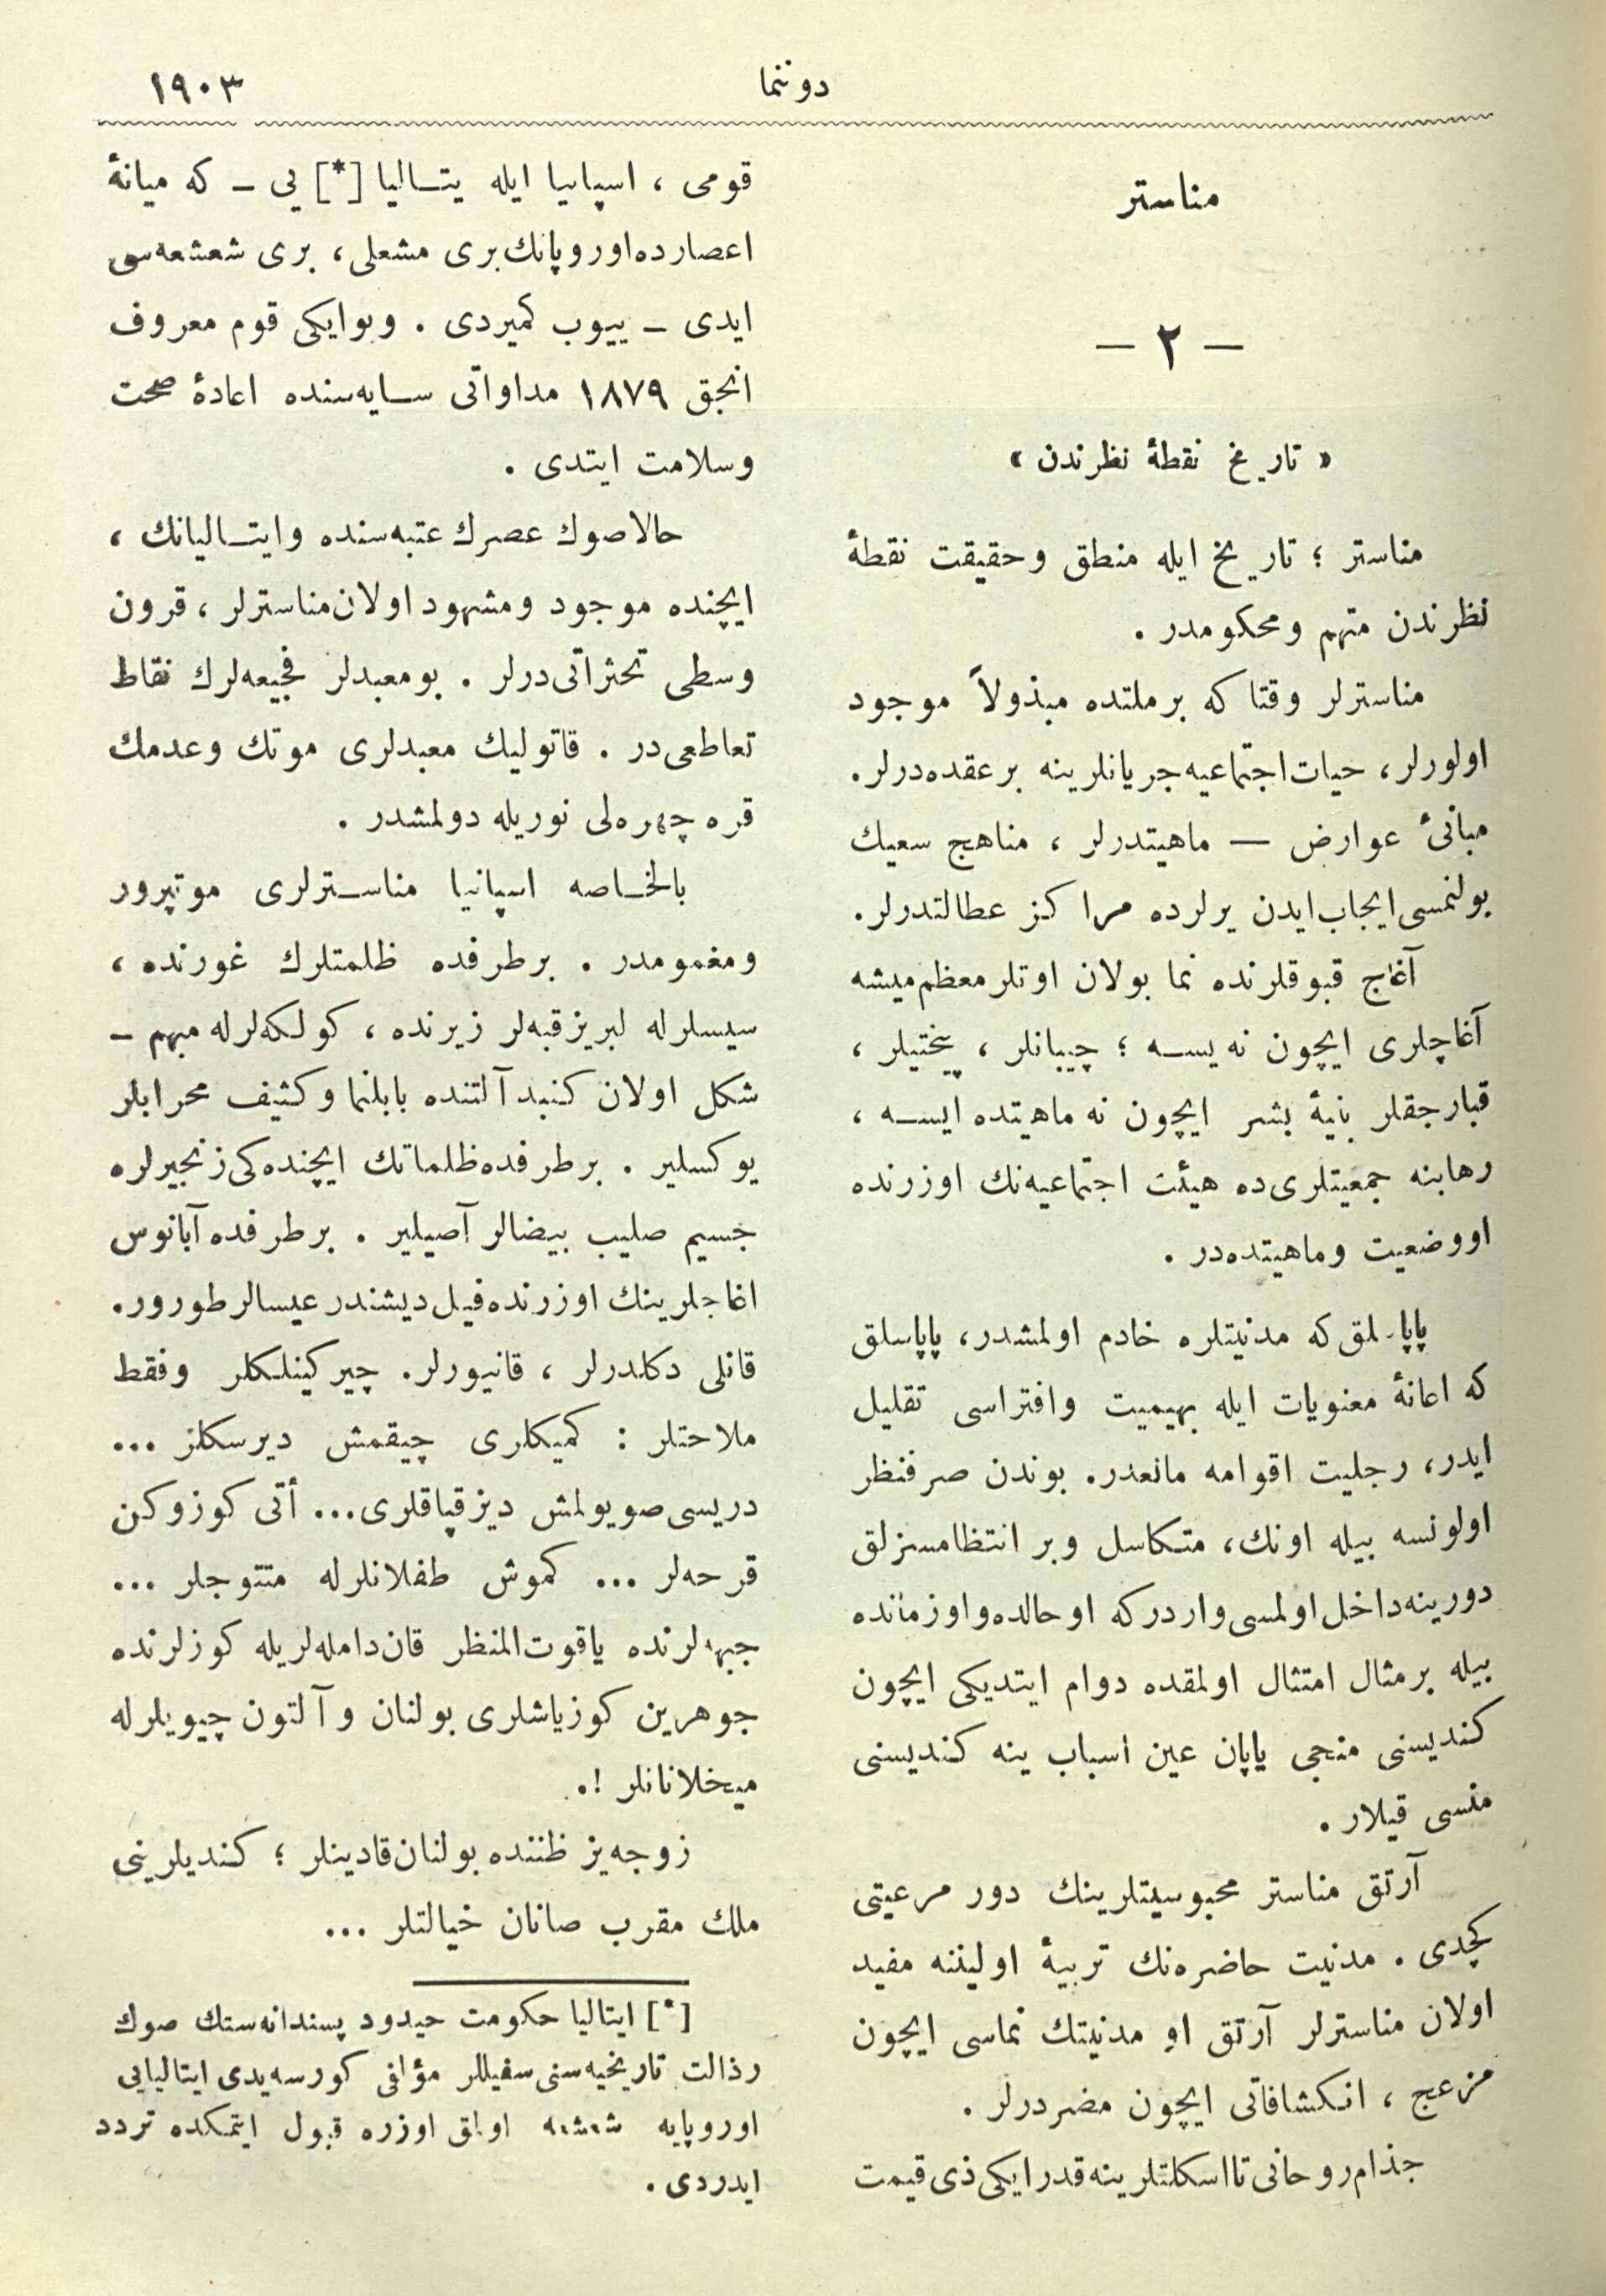 دوننما
١٩٠٣
مناستر
— ٢ —
« تاریخ نقطهٔ نظرندن »
مناستر ؛ تاریخ ایله منطق وحقیقت نقطهٔ
نظرندن متهم ومحکومدر .
مناسترلر وقتا که برملتده مبذولاً موجود
اولورلر، حیات اجتماعیه جریانلرینه برعقده درلر.
مبانیٔ عوارض — ماهیتدرلر ، مناهج سعیك
بولنمسی ایجاب ایدن یرلرده مراکز عطالتدرلر.
آغاج قبوقلرنده نما بولان اوتلر معظم میشه
آغاچلری ایچون نه یسه ؛ چیبانلر ، پیختیلر ،
قبارجقلر بنیهٔ بشر ایچون نه ماهیتده ایسه ،
رهابنه جمعیتلری ده هیئت اجتماعیه نك اوزرنده
اووضعیت وماهیتده در .
پاپاسلق که مدنیتلره خادم اولمشدر، پاپاسلق
که اعانهٔ معنویات ایله بهیمیت وافتراسی تقلیل
ایدر، رجلیت اقوامه مانعدر. بوندن صرفنظر
اولونسه بیله اونك، متکاسل وبر انتظامسزلق
دورینه داخل اولمسی واردرکه اوحالده واوزمانده
بیله برمثال امتثال اولمقده دوام ایتدیکی ایچون
کندیسنی منجی یاپان عین اسباب ینه کندیسنی
منسی قیلار .
آرتق مناستر محبوسیتلرینك دور مرعیتی
کچدی . مدنیت حاضره نك تربیهٔ اولیننه مفید
اولان مناسترلر آرتق او مدنیتك نماسی ایچون
مزعج ، انکشافاتی ایچون مضردرلر .
جذام روحانی تا اسکلتلرینه قدر ایکی ذی قیمت
قومی ، اسپانیا ایله یتالیا [*] یی ـ که میانهٔ
اعصارده اوروپانك بری مشعلی ، بری شعشعه سی
ایدی ـ ییوب کمیردی . وبوایکی قوم معروف
انجق ١٨٧٩ مداواتی سایه سنده اعادهٔ صحت
وسلامت ایتدی .
حالا صوك عصرك عتبه سنده وایتالیانك ،
ایچنده موجود ومشهود اولان مناسترلر ، قرون
وسطی تحثراتی درلر . بومعبدلر فجیعه لرك نقاط
تعاطعی در . قاتولیك معبدلری موتك وعدمك
قره چهره لی نوریله دولمشدر .
بالخاصه اسپانیا مناسترلری موتپرور
ومغمومدر . برطرفده ظلمتلرك غورنده ،
سیسلرله لبریز قبه لر زیرنده ، کولکه لرله مبهم ـ
شکل اولان کنبد آلتنده بابلنما وکثیف محرابلر
یوکسلیر . برطرفده ظلماتك ایچنده کی زنجیرلره
جسیم صلیب بیضالر آصیلیر . برطرفده آبانوس
اغاجلرینك اوزرنده فیل دیشندر عیسالر طورور.
قانلی دکلدرلر ، قانیورلر. چیرکینلکلر وفقط
ملاحتلر : کمیکلری چیقمش دیرسکلر ...
دریسی صویولمش دیز قپاقلری... أتی کوزوکن
قرحه لر ... کموش طفلانلرله متتوجلر ...
جبهه لرنده یاقوت المنظر قان دامله لریله کوزلرنده
جوهرین کوزیاشلری بولنان وآلتون چیویلرله
میخلانانلر !.
زوجه یز ظننده بولنان قادینلر ؛ کندیلرینی
ملك مقرب صانان خیالتلر ...
[*] ایتالیا حکومت حیدود پسندانه ستك صوك
رذالت تاریخیه سنی سفیللر مؤلفی کورسه یدی ایتالیایی
اوروپایه شعشعه اولمق اوزره قبول ایتمکده تردد
ایدردی .